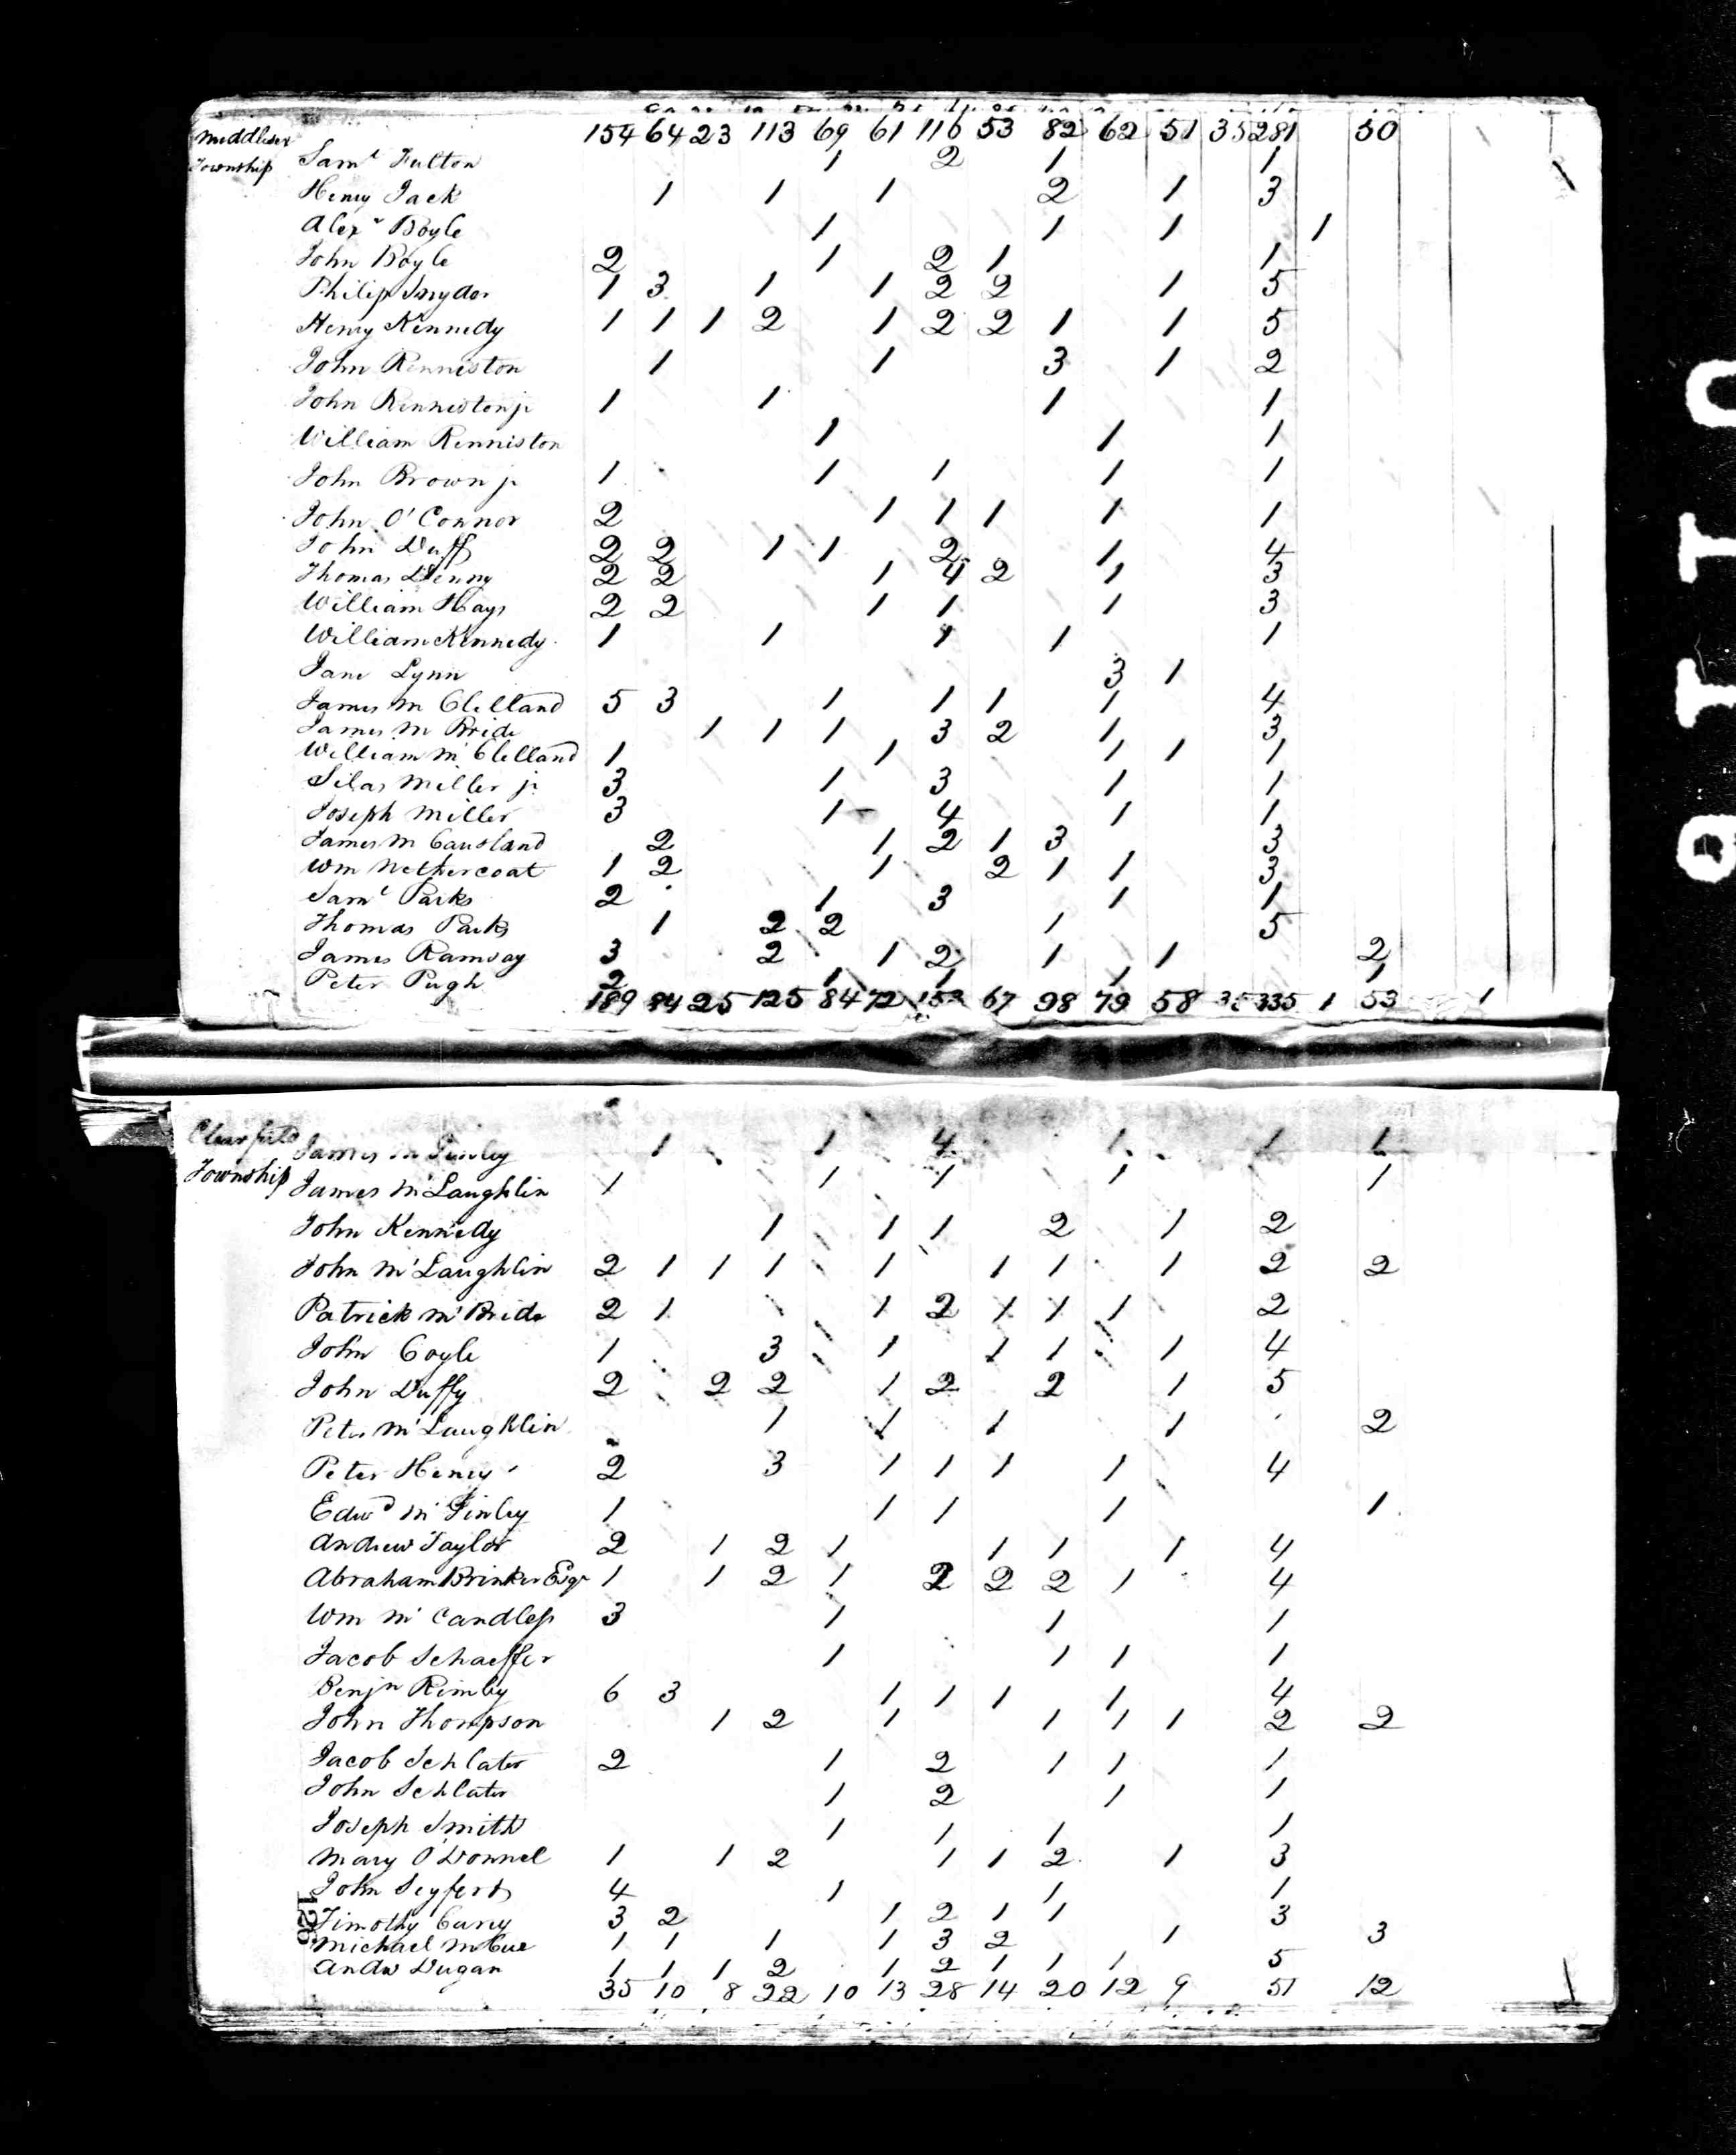 154 64 23 113 69 61 116 53 82 62 51 35 281 50
Middlesex
Township
Sam^l Fulton 1 2 1 1
Henry Jack 1 1 1 2 1 3
Alex^r Boyle 1 1 1 1
John Boyle 2 1 2 1 1
Philip Snyder 1 3 1 1 2 2 1 5
Henry Kennedy 1 1 1 2 1 2 2 1 1 5
John Renniston 1 1 3 1 2
John Renniston jr 1 1 1 1
William Renniston 1 1 1
John Brown jr 1 1 1 1 1
John O'Connor 2 1 1 1 1 1
John Duff 2 2 1 1 2 1 4
Thomas Denny 2 2 1 4 2 1 3
William Hays 2 2 1 1 1 3
William Kennedy 1 1 1 1 1
Jane Lynn 3 1
James McClelland 5 3 1 1 1 1 4
James McBride 1 1 1 3 2 1 3
William McClelland 1 1 1 1 1
Silas Miller jr 3 1 3 1 1
Joseph Miller 3 1 4 1 1
James McCausland 2 1 2 1 3 3
Wm Nethercoat 1 2 1 2 1 1 3
Sam^l Parks 2 1 3 1 1
Thomas Parks 1 2 2 1 5
James Ramsay 3 2 1 2 1 1 2
Peter Pugh 2 1 1 1 1
189 84 25 125 84 72 153 67 98 79 58 35 335 1 53 1
Clearfield
Township
James McGinley 1 1 4 1 1 1
James McLaughlin 1 1 1 1 1
John Kennedy 1 1 1 2 1 2
John McLaughlin 2 1 1 1 1 1 1 1 2 2
Patrick McBride 2 1 1 2 1 1 1 2
John Coyle 1 3 1 1 1 1 4
John Duffy 2 2 2 1 2 2 1 5
Peter McLaughlin 1 1 1 1 2
Peter Henry 2 3 1 1 1 1 4
Edw^d McGinley 1 1 1 1 1
Andrew Taylor 2 1 2 1 1 1 1 4
Abraham Brinker Esqr 1 1 2 1 2 2 2 1 4
Wm McCandless 3 1 1 1
Jacob Schaeffer 1 1 1 1
Benj^n Rimby 6 3 1 1 1 1 4
John Thompson 1 2 1 1 1 1 2 2
Jacob Schlater 2 1 2 1 1 1
John Schlater 1 2 1 1
Joseph Smith 1 1 1 1
Mary O'Donnel 1 1 2 1 1 2 1 3
John Seyfert 4 1 1 1
Timothy Carey 3 2 1 2 1 1 3
Michael McCue 1 1 1 1 3 2 1 3
Andw Dugan 1 1 1 2 1 2 1 1 1 5
35 10 8 22 10 13 28 14 20 12 9 51 12
126
OHIO